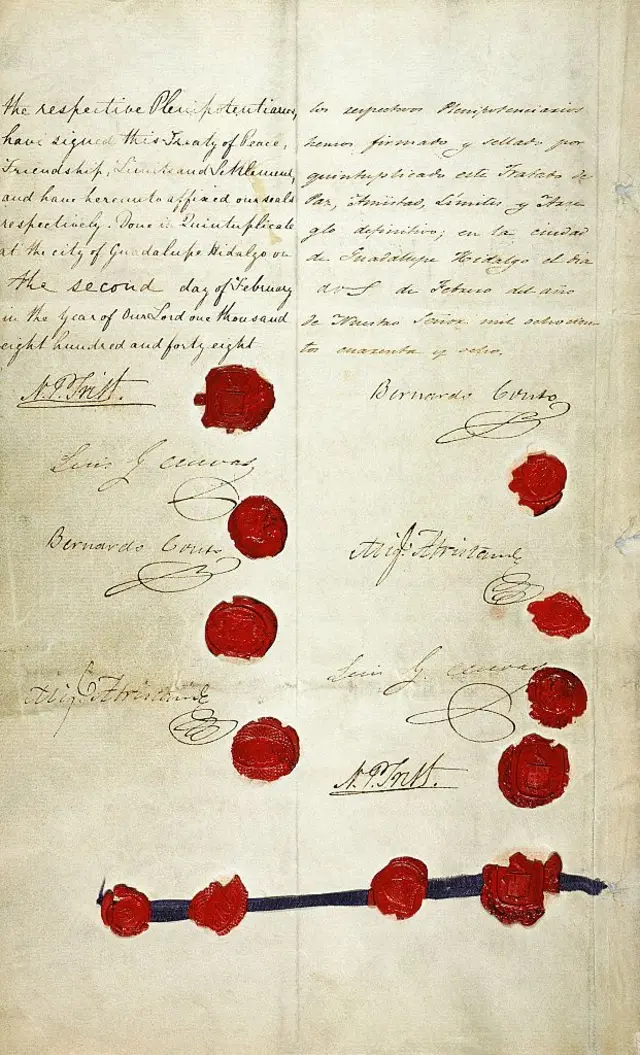 the respective Plenipotentiaries,
have signed this Treaty of Peace,
Friendship, Limits and Settlement,
and have hereunto affixed our seals
respectively. Done in Quintuplicate
at the city of Guadalupe Hidalgo on
the second day of February
in the year of Our Lord one thousand
eight hundred and forty eight
N. P. Trist.
Luis G. Cuevas
Bernardo Couto
Migl. Atristain
los respectivos Plenipotenciarios
hemos firmado y sellado por
quintuplicado este Tratado de
Paz, Amistad, Límites y Arre
glo definitivo; en la ciudad
de Guadalupe Hidalgo el dia
dos de Febrero del año
de Nuestro Señor mil ochocien
tos cuarenta y ocho.
Bernardo Couto
Migl. Atristain
Luis G. Cuevas
N. P. Trist.